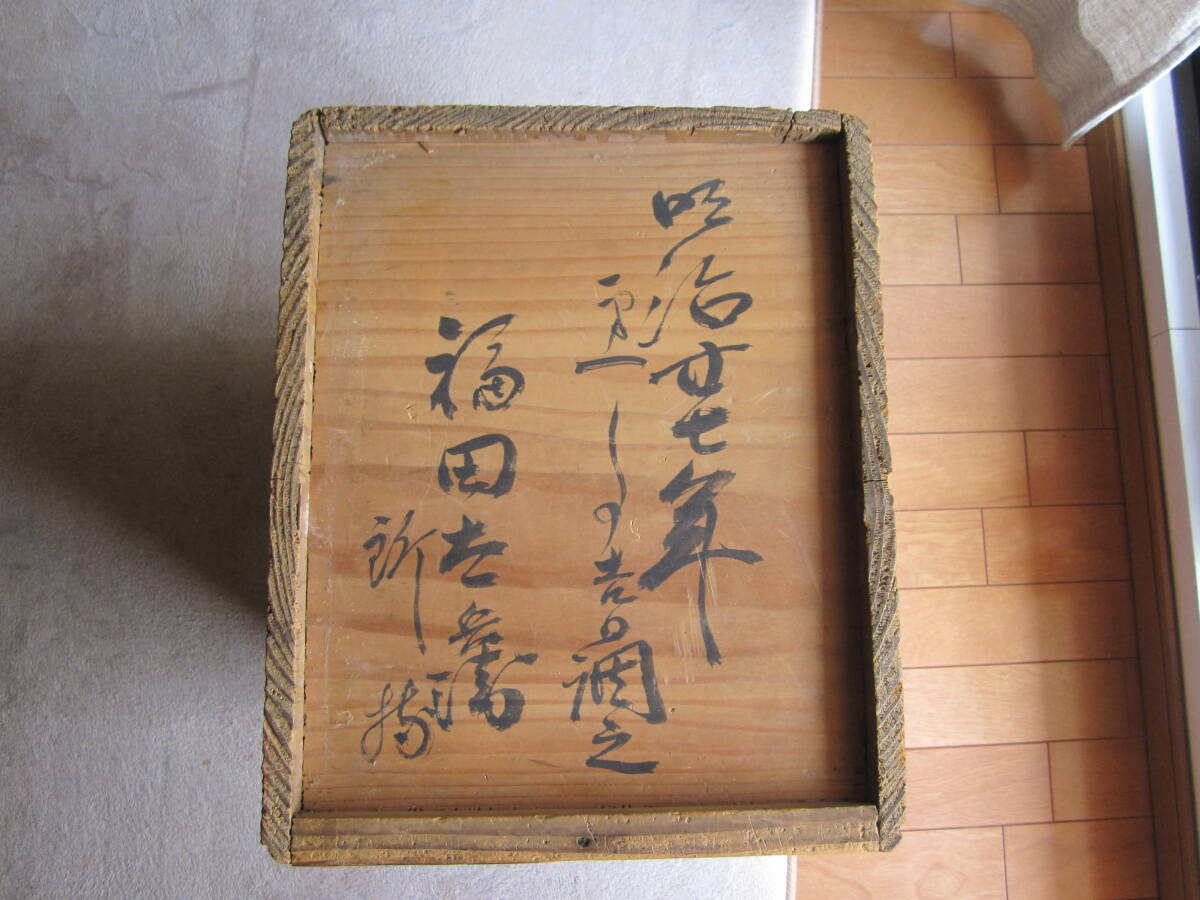 明治廿七年
吉日調之
福田吉兵衛
所持